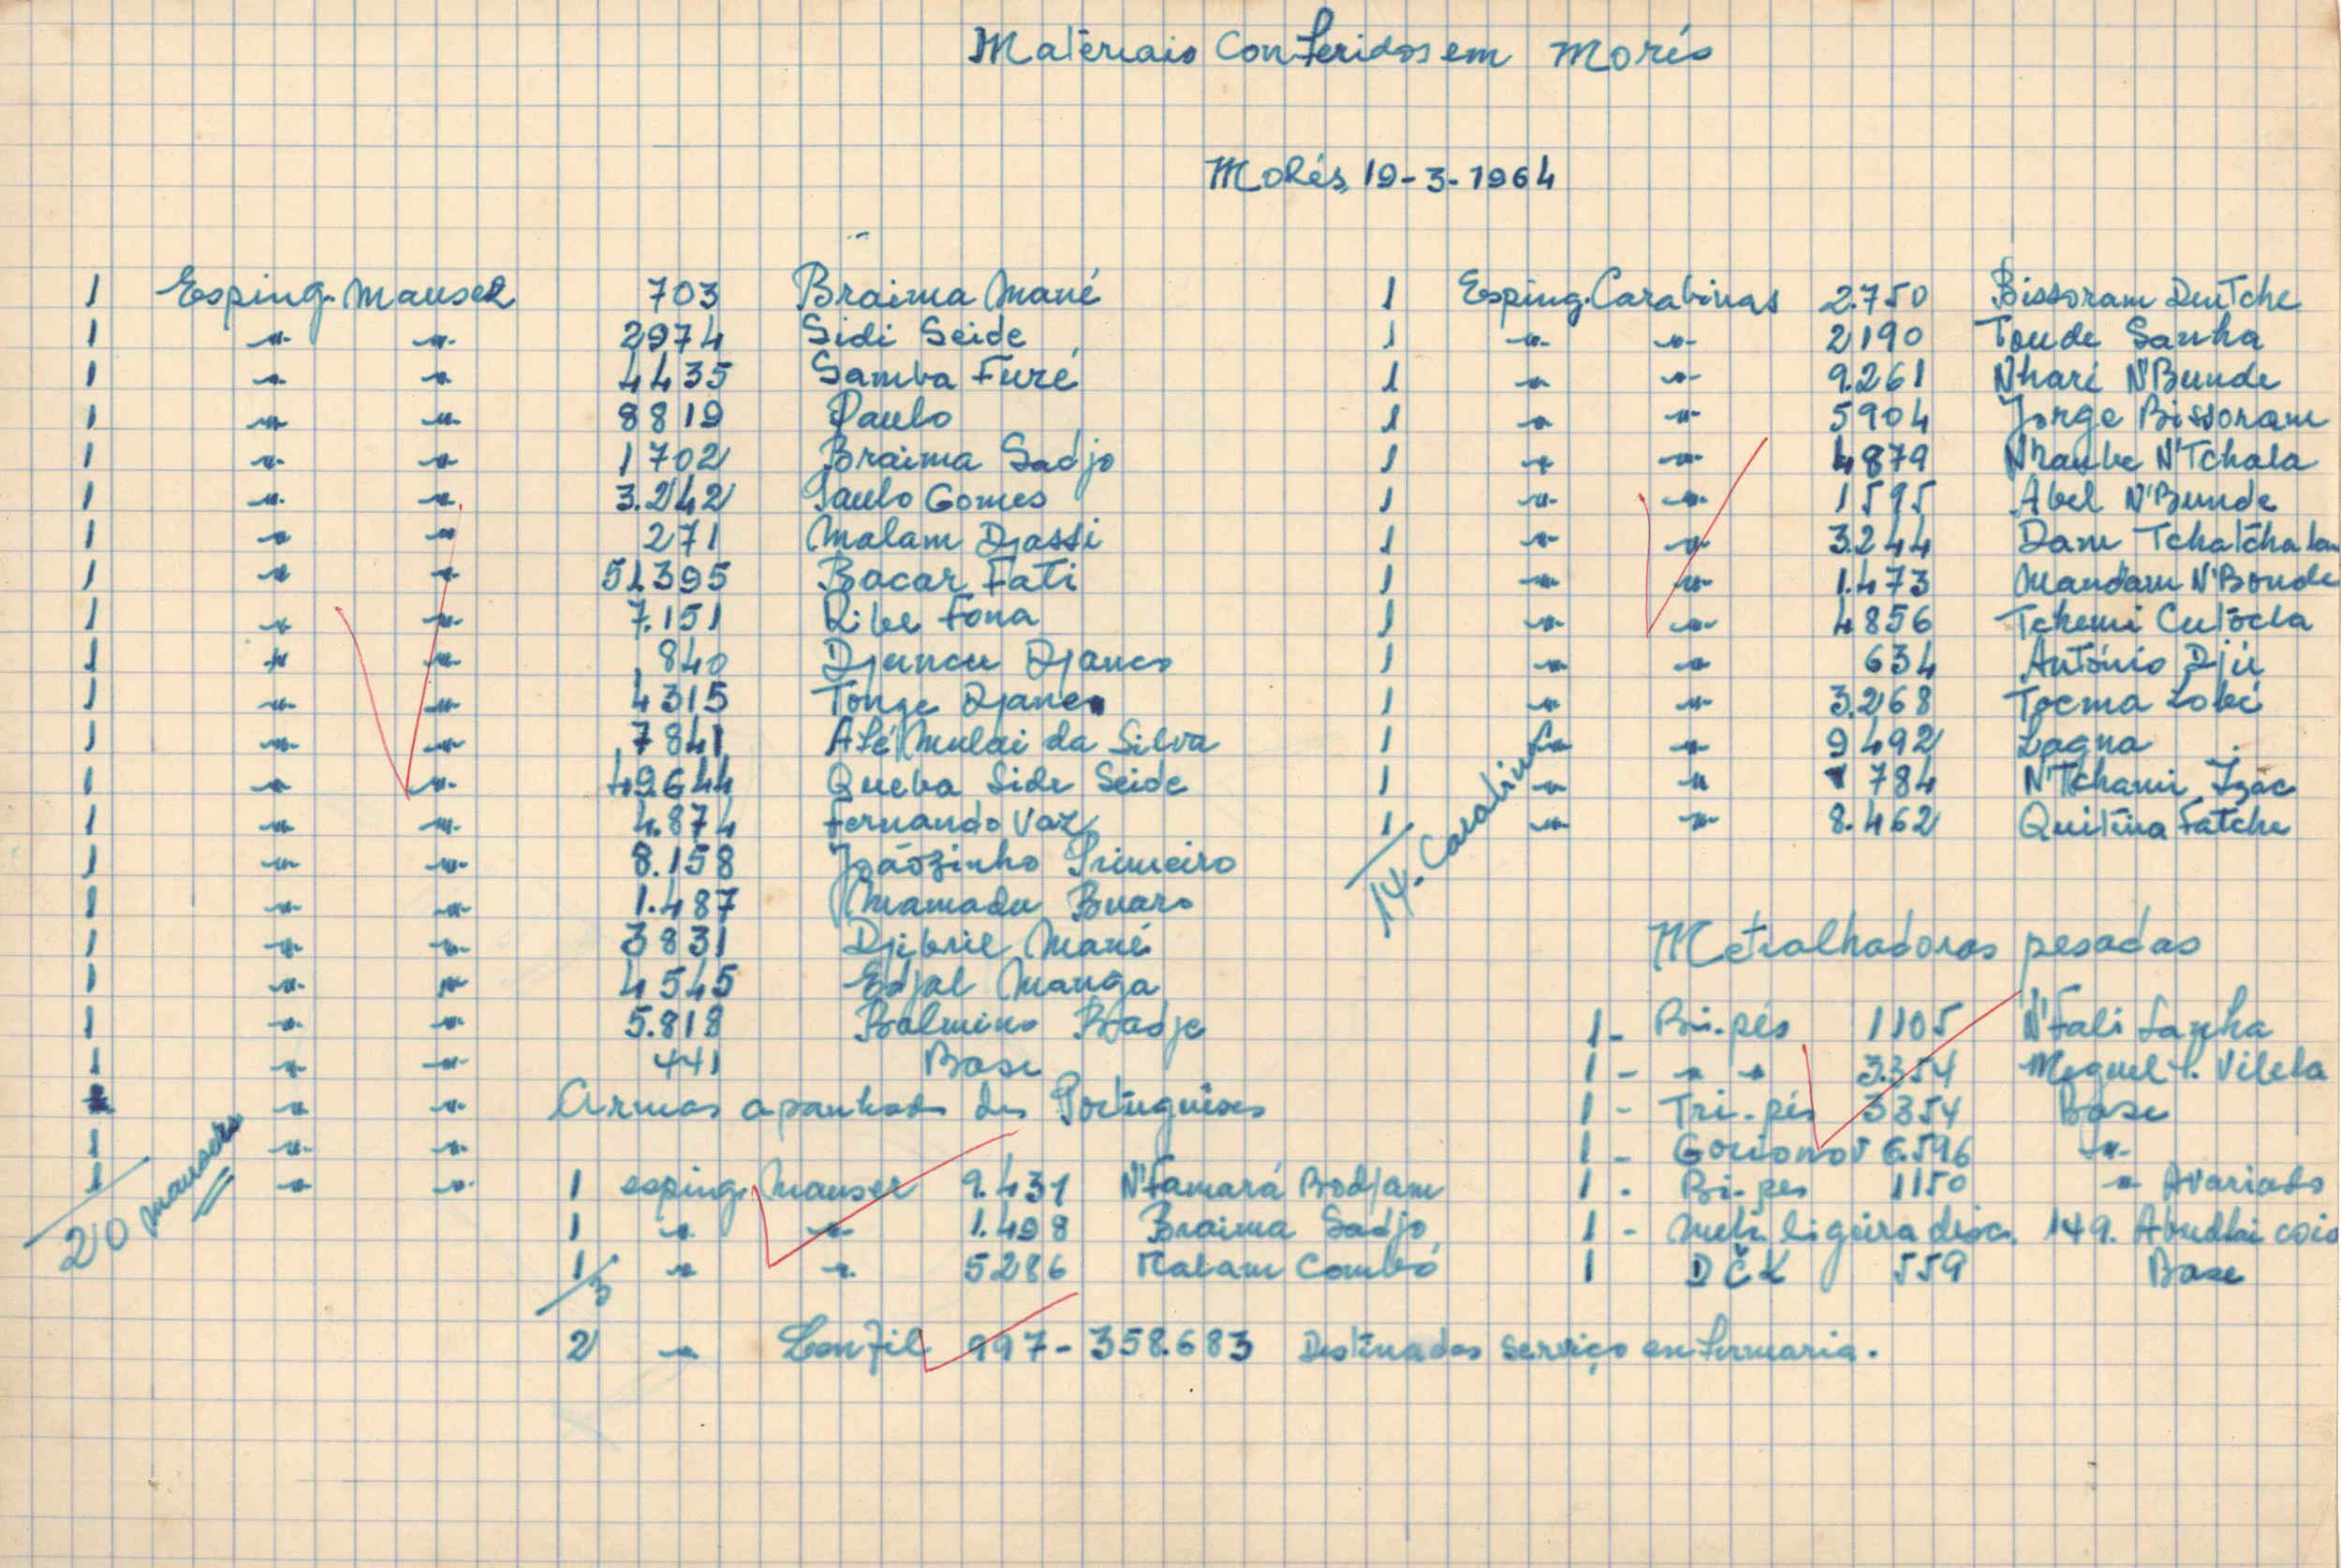 Materiais Conferidos em Morés
Morés, 19-3-1964
1 Esping. Mauser 703 Braima Mané
1 -"- -"- 2974 Sidi Seide
1 -"- -"- 4435 Samba Furé
1 -"- -"- 8819 Paulo
1 -"- -"- 1702 Braima Sadjo
1 -"- -"- 3.242 Paulo Gomes
1 -"- -"- 271 Malam Djassi
1 -"- -"- 51395 Bacar Fati
1 -"- -"- 7.151 Ribe Fona
1 -"- -"- 840 Djancu Djanco
1 -"- -"- 4315 Tonge
1 -"- -"- 7841 Afé Mulai da Silva
1 -"- -"- 49644 Queba Side Seide
1 -"- -"- 4.874 Fernando Vaz
1 -"- -"- 8.158 Joãozinho Primeiro
1 -"- -"- 1.487 Mamadu Buaro
1 -"- -"- 3831 Djibril Mané
1 -"- -"- 4545 Edjal Manga
1 -"- -"- 5.818 Balmino Badje
1 -"- -"- 441 Base
-"- -"-
1 -"- -"-
1 -"- -"-
20 mausers
Armas apanhads dos Portuguêses
1 esping. Mauser 9.431 N'Famará Bodjam
1 -"- -"- 1.498 Braima Sadjo
1 -"- -"- 5286 Malam Combó
3
2 -"- Lonfil 997-358.683 Destinados serviço enfermaria.
1 Esping. Carabinas 2.750 Bissoram Dentche
1 -"- -"- 2190 Toude Sanha
1 -"- -"- 9.261 N'hari N'Bunde
1 -"- -"- 5904 Jorge Bissoram
1 -"- -"- 4879 N'raube N'Tchala
1 -"- -"- 1595 Abel N'Bunde
1 -"- -"- 3.244 Dam
1 -"- -"- 1.473 Mandam N'Bonde
1 -"- -"- 4856 Tchemi
1 -"- -"- 634 António Djú
1 -"- -"- 3.268 Tocma Lobé
1 -"- -"- 9492 Lagna
1 -"- -"- 784 N'Tchami Izac
1 -"- -"- 8.462 Quitina Fatche
14. Carabinas
Metralhadoras pesadas
1- Bi-pés 1105 N'Fali Sanha
1 - -"- -"- 3.354 Meguel t. Vilela
1 - Tri-pés 3354 Base
1 - Gorionov 6.596 -"-
1 - Bi-pes 1150 -"- Avariado
1 - Metr. ligeira disc. 149. Abudlai
1 DČK 559 Base